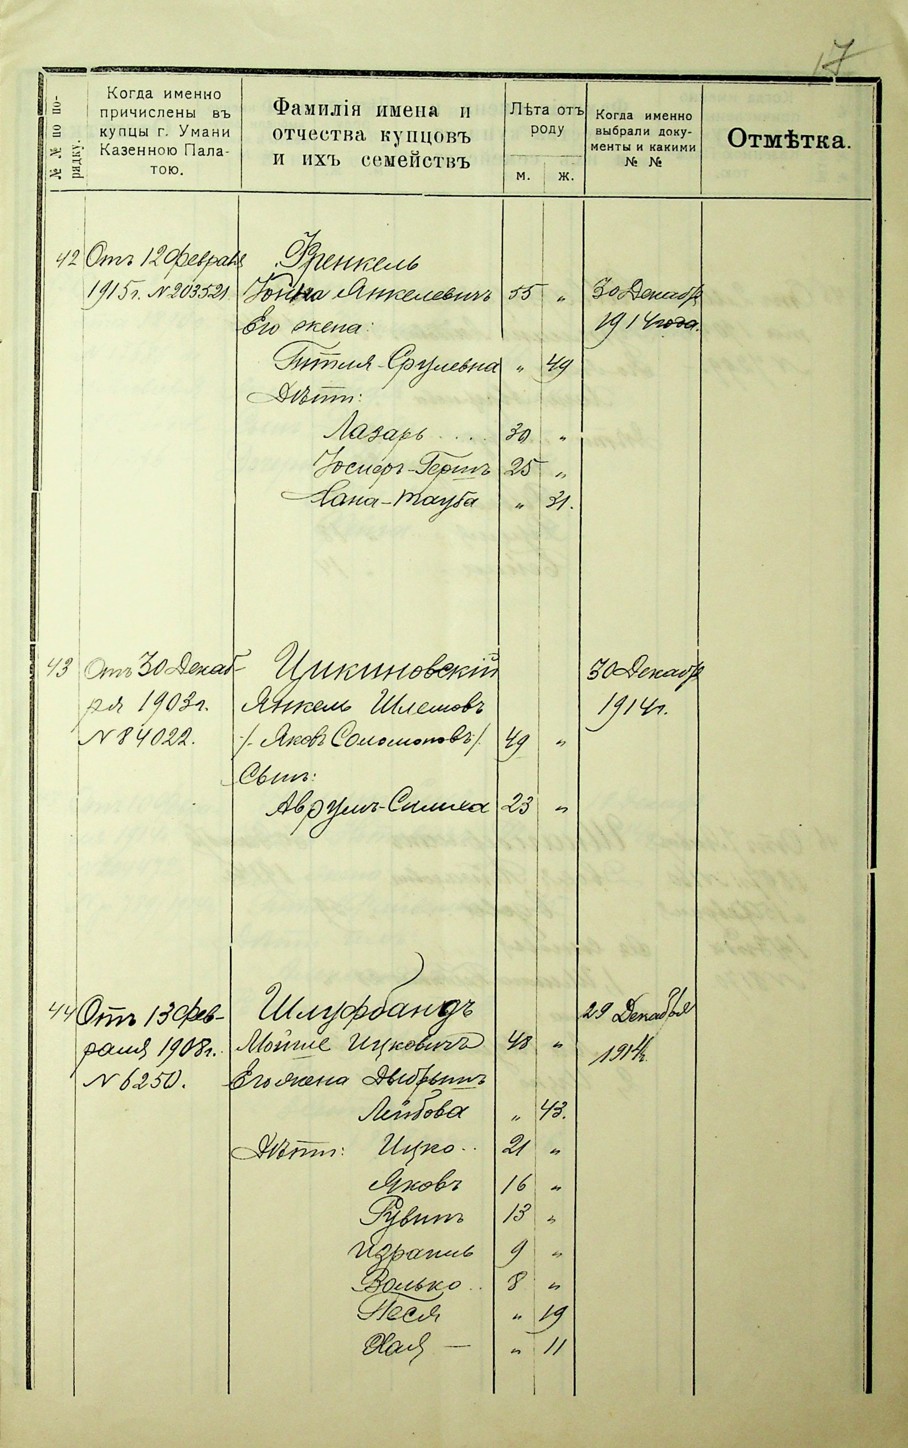 17
№ № по по-
рядку.
Когда именно
причислены въ
купцы г. Умани
Казенною Пала-
тою.
Фамилія имена и
отчества купцовъ
и ихъ семействъ
Лѣта отъ
роду
м. ж.
Когда именно
выбрали доку-
менты и какими
№ №
Отмѣтка.
42 Отъ 12 февраля Френкель
1915 г. № 203521 Іонна Янкелевичъ 55 „ 30 Декабр
Его жена: 1914 года.
Гитля-Срулевна „ 49
Дѣти:
Лазарь .... 30 „
Іосифъ-Гершъ 25 „
Хана-Тауба „ 21.
43 Отъ 30 Декаб- Цикиновскій 30 Декабр
ря 1903 г. Янкель Шлемовъ 1914 г.
№ 84022. /. Яковъ Соломоновъ/. 49 „
Сынъ:
Аврумъ-Симха 23 „
44 Отъ 13 фев- Шлуфбандъ 29 Декабря
раля 1908 г. Мойше Ицковичъ 48 „ 1914 г.
№ 6250. Его жена Двебрышъ
Лейбова „ 43.
Дѣти: Ицко .. 21 „
Яковъ 16 „
Рувинъ 13 „
Израиль 9 „
Волько .. 8 „
Песя „ 19
Хая — „ 11